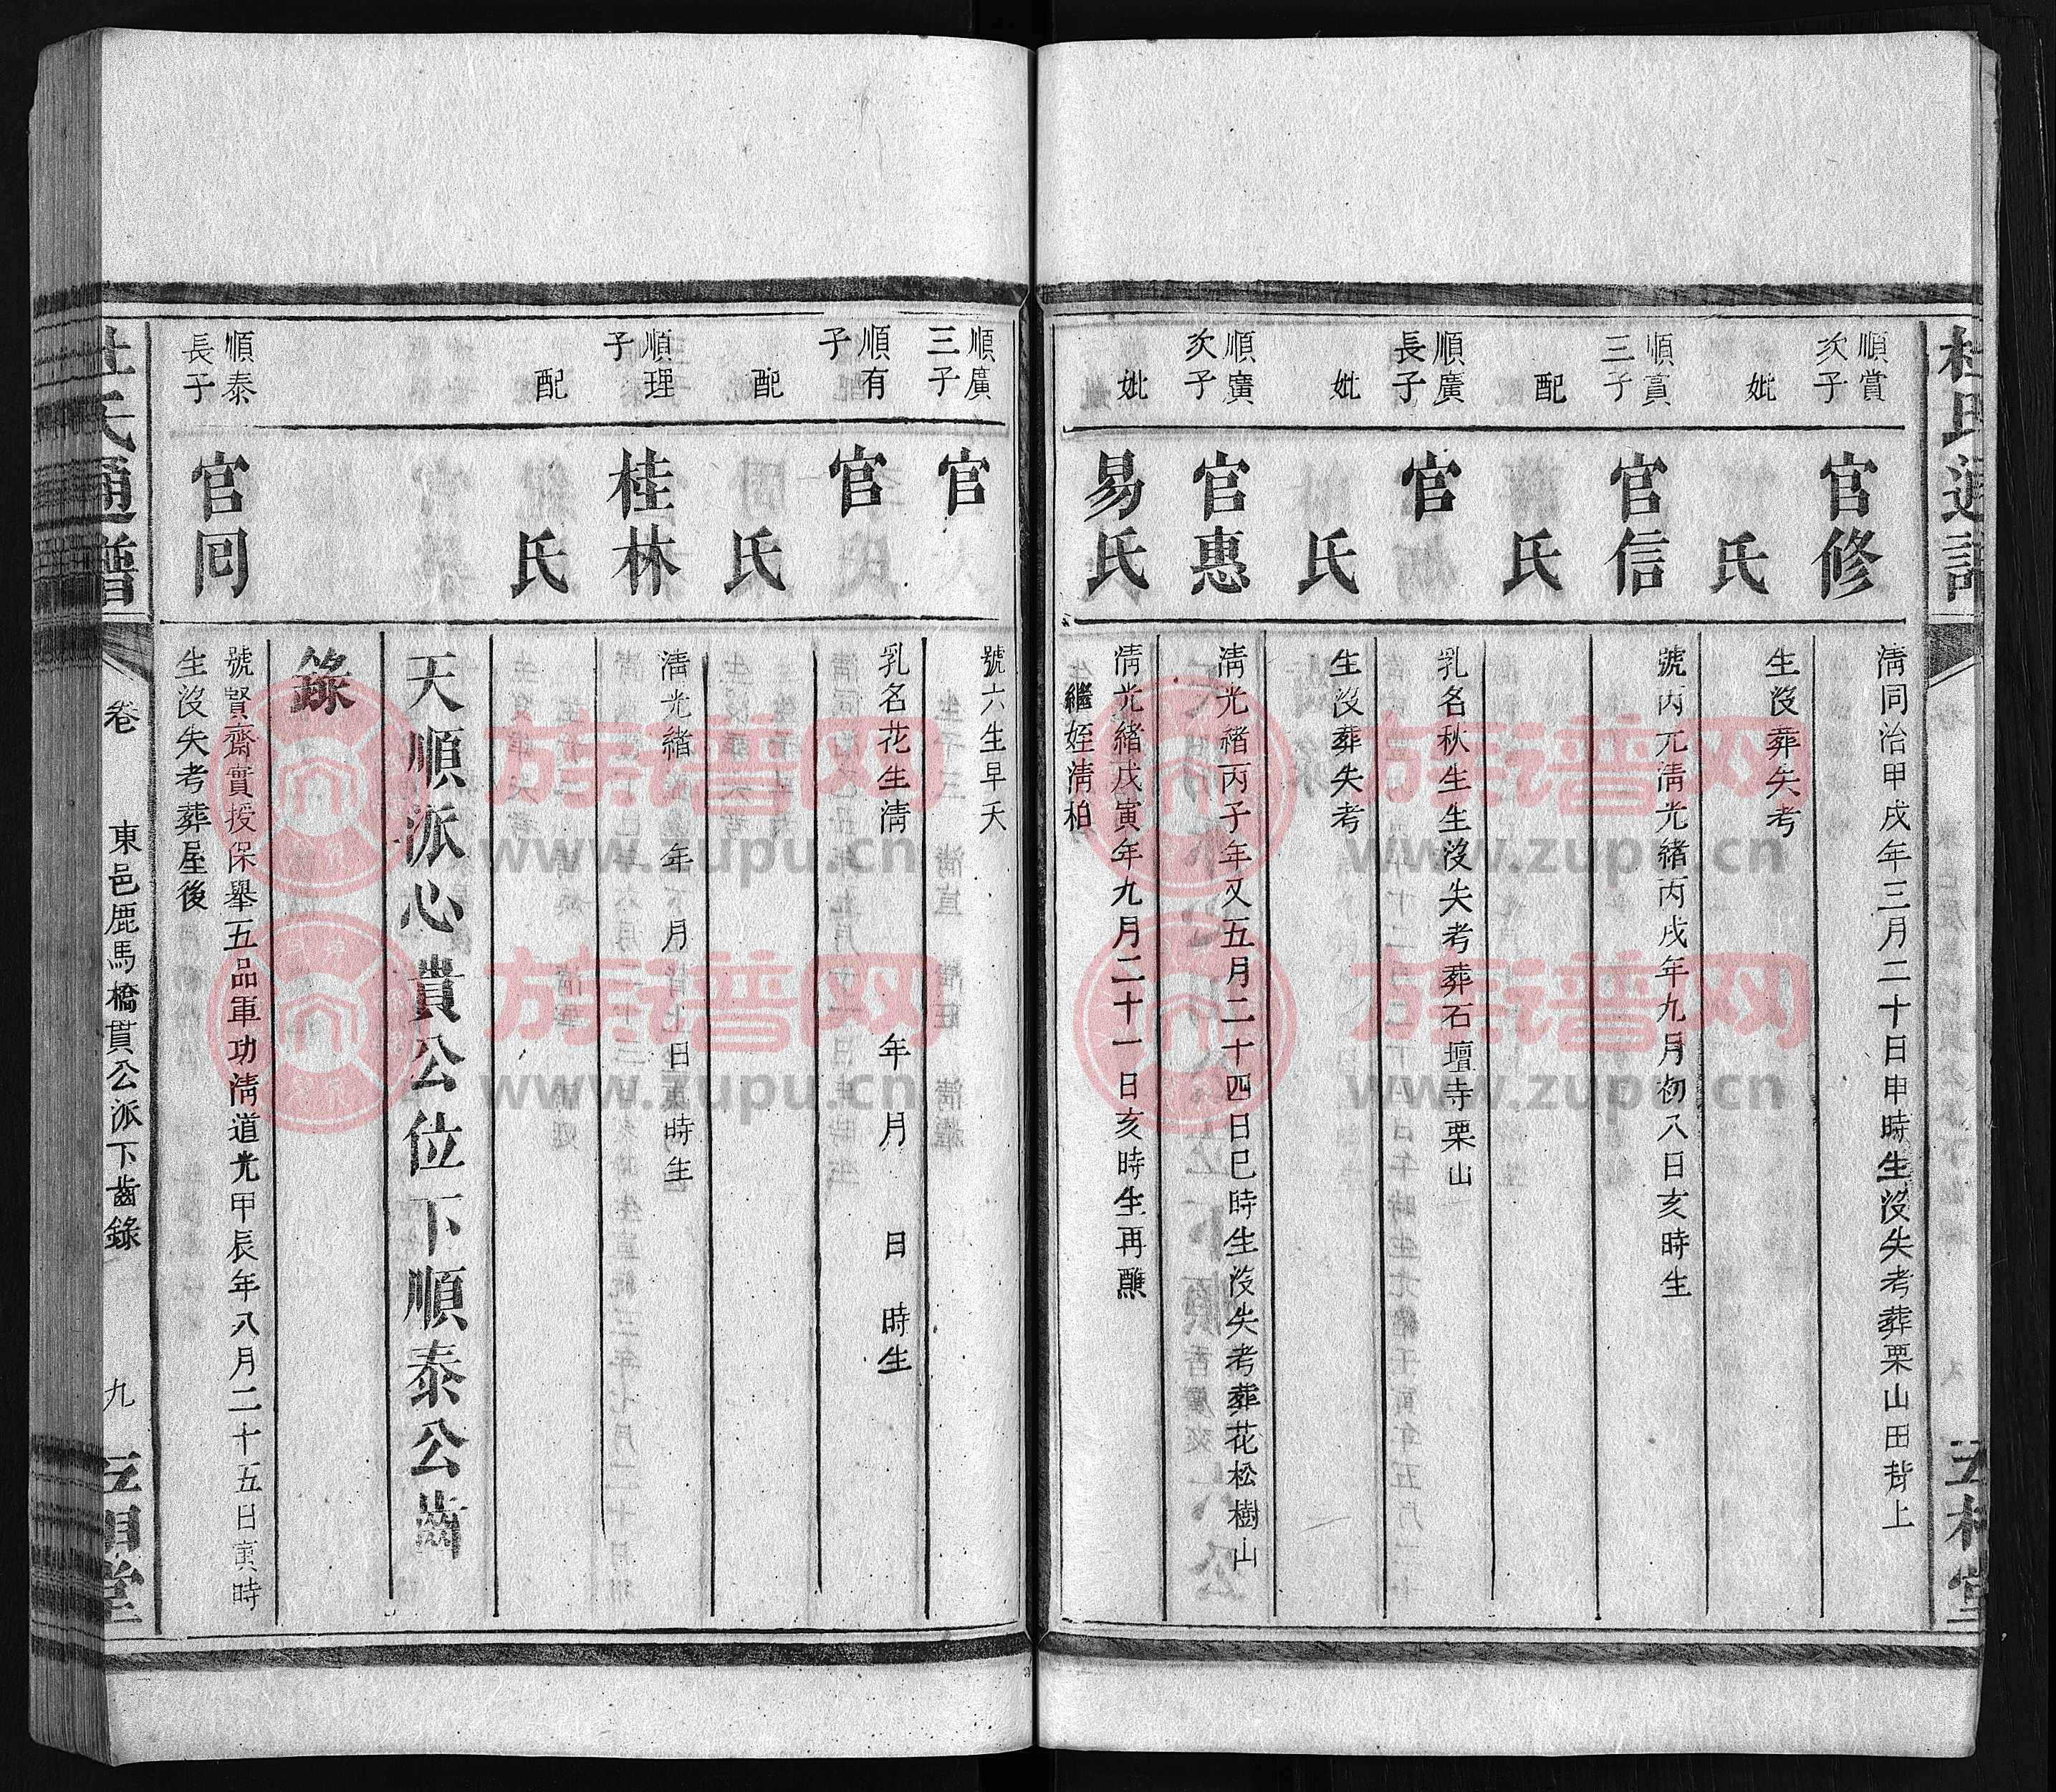 杜氏通譜
五桂堂
順賞
次子
官修
清同治甲戌年三月二十日申時生沒失考葬栗山田背上
妣
氏
生沒葬失考
順賞
三子
官信
號丙元清光緒丙戌年九月初八日亥時生
配
氏
順廣
長子
官
乳名秋生生沒失考葬石壇寺栗山
妣
氏
生沒葬失考
順廣
次子
官惠
清光緒丙子年又五月二十四日巳時生沒失考葬花松樹山
妣
易氏
清光緒戊寅年九月二十一日亥時生再醮
繼姪清柏
順廣
三子
官
號六生早夭
順有
子
官
乳名花生清 年 月 日 時生
配
氏
順理
子
桂林
清光緒 年 月 日 時生
配
氏
天順派心貴公位下順泰公齒
錄
順泰
長子
官囘
號賢齋實授保舉五品軍功清道光甲辰年八月二十五日寅時
生沒失考葬屋後
杜氏通譜
卷
東邑鹿馬橋貫公派下齒錄
九
五桂堂
族谱网
www.zupu.cn
族谱网
www.zupu.cn
族谱网
www.zupu.cn
族谱网
www.zupu.cn